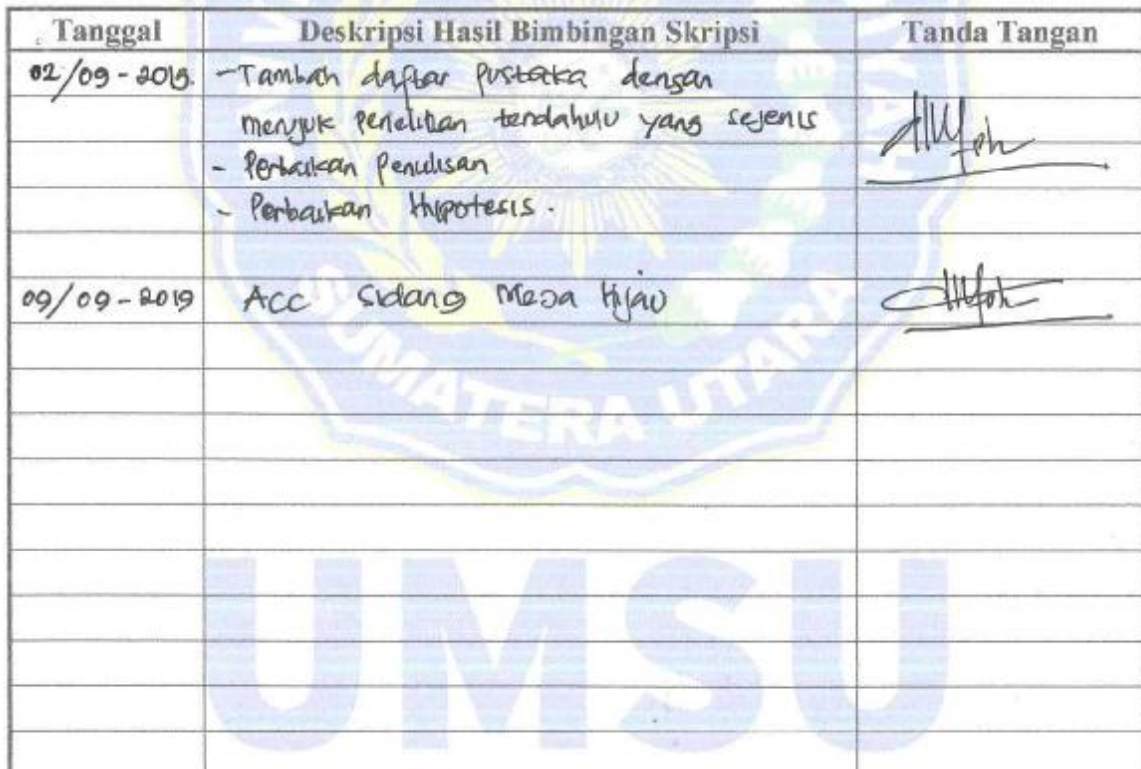 Tanggal Deskripsi Hasil Bimbingan Skripsi Tanda Tangan
02/09-2019. -Tambah daftar pustaka dengan
merujuk penelitian terdahulu yang sejenis
- Perbaikan Penulisan
- Perbaikan Hipotesis.
09/09-2019 ACC Sidang Meja Hijau
SUMATERA UTARA
UMSU